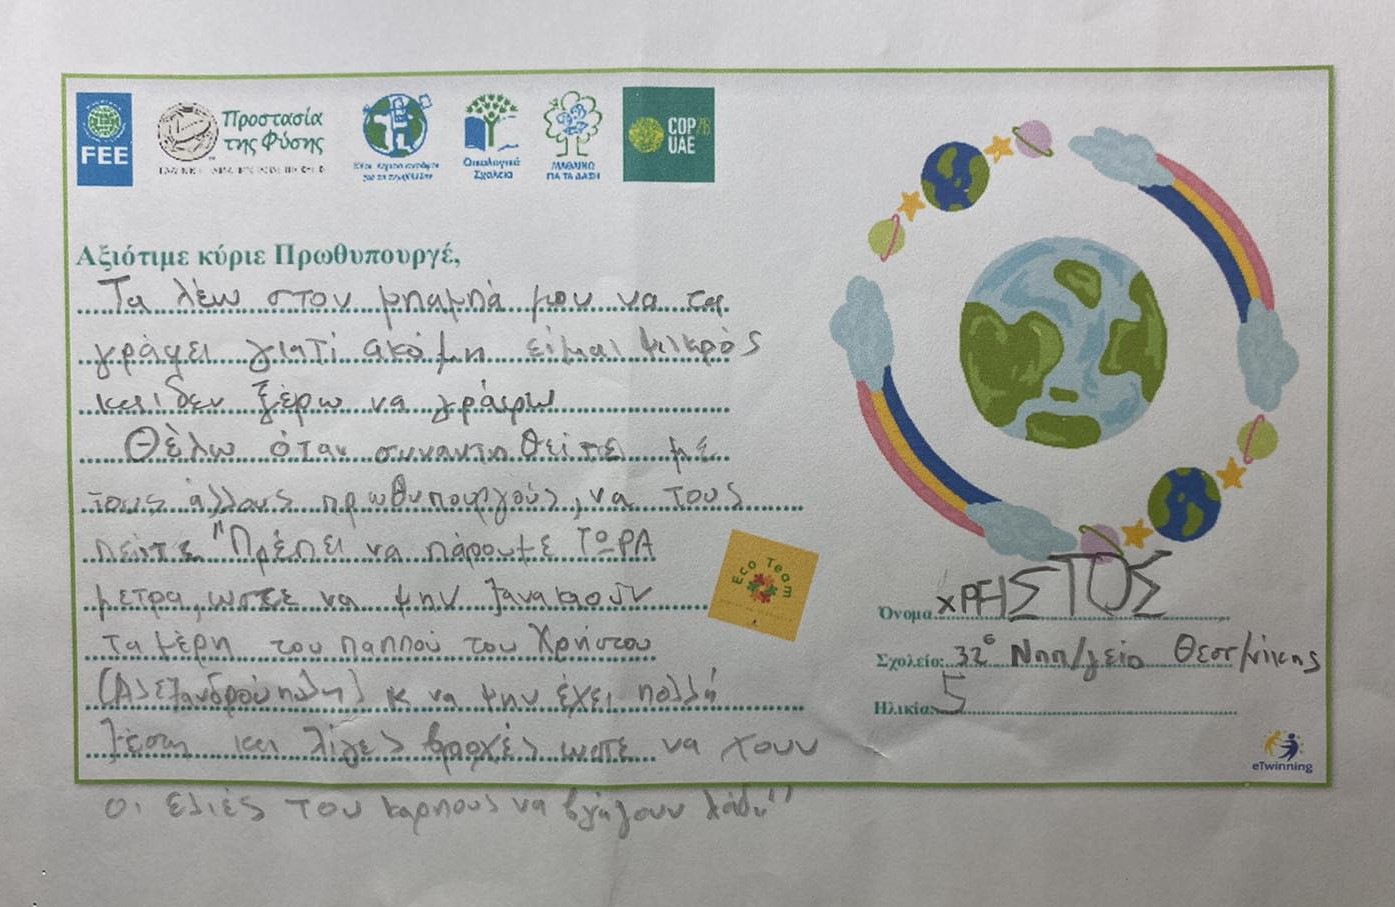 FEE
Προστασία
της Φύσης
Οικολογικά
Σχολεία
ΜΑΘΑΙΝΩ
ΓΙΑ ΤΑ ΔΑΣΗ
COP28
UAE
Αξιότιμε κύριε Πρωθυπουργέ,
Τα λέω στον μπαμπά μου να τα
γράψει γιατί ακόμη είμαι μικρός
και δεν ξέρω να γράφω
Θέλω όταν συναντηθείτε με
τους άλλους πρωθυπουργούς, να τους
πείτε "Πρέπει να πάρουμε ΤΩΡΑ
μετρα, ωστε να μην ξανακαούν
τα μέρη του παππού του Χρήστου
(Αλεξανδρούπολη) κ να μην έχει πολλή
ζέστη και λίγες βροχές ωστε να χουν
οι ελιές του καρπους να βγάζουν λάδι"
Eco Team
Όνομα ΧΡΗΣΤΟΣ
Σχολείο: 32ο Νηπ/γείο Θεσ/νίκης
Ηλικία: 5
eTwinning